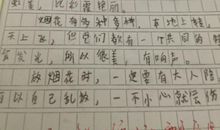 虹差，比彩霞艳丽。
烟花有多种多样，本地上转，
天上飞，但它们都有一个共同的特
会发光，所以很美，有响声。
放烟花时，一定要有大人陪
可以自己乱放，一不小心就会伤